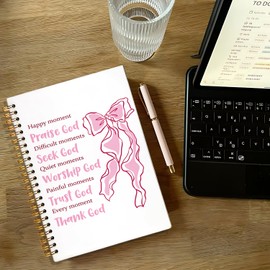 Happy moment
Praise God
Difficult moments
Seek God
Quiet moments
Worship God
Painful moments
Trust God
Every moment
Thank God
TO DO